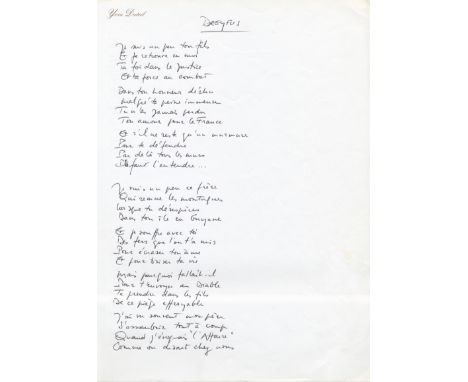 Yves Duteil
DREYFUS
Je suis un peu ton fils
Et je retrouve en moi
Ta foi dans la justice
Et ta force au combat
Dans ton honneur déchu
Malgré ta peine immense
Tu n'as jamais perdu
Ton amour pour la France
Et s'il ne reste qu'un murmure
Pour te défendre
Par delà tous les murs
Il faut l'entendre...
Je suis un peu ce frère
Qui remue les montagnes
Lorsque tu désespères
Dans ton île en Guyane
Et je souffre avec toi
Des fers que l'on t'a mis
Pour écraser ton âme
Et pour briser ta vie
Mais pourquoi fallait-il
Pour t'envoyer au Diable
Te prendre dans les fils
De ce piège effroyable
J'ai vu souvent mon père
S'assombrir tout à coup
Quand j'évoquais "l'Affaire"
Comme on disait chez nous